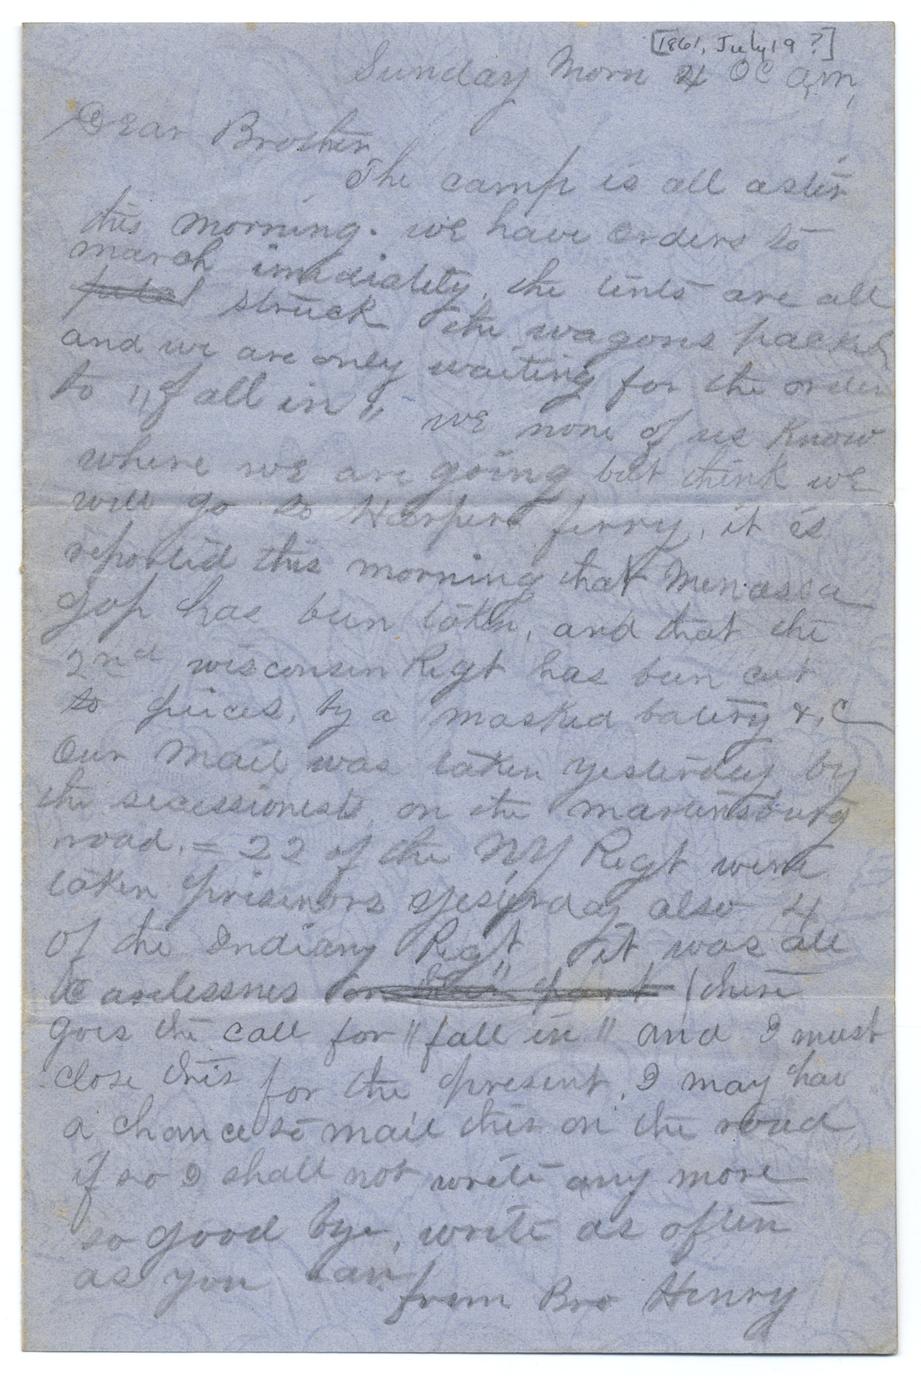 [1861, July 19?]
Sunday Morn 4 OC a,m,
Dear Brother
The camp is all astir
this morning. we have orders to
march imediatety, the tents are all
struck the wagons packed
and we are only waiting for the order
to "fall in" we none of us know
where we are going but think we
will go to Harpers ferry, it is
reported this morning that Menassa
gap has been taken, and that the
2nd wisconsin Regt has been cut
to peices, by a masked batery &,C
Our mail was taken yesterday by
the secessionests, on the martinsburg
road, = 22 of the NY Regt were
taken prisenors yesterday also 4
of the Indiany Regt it was all
carelessnes (there
goes the call for "fall in" and I must
close this for the present, I may hav
a chance to mail this on the road
if so I shall not write any more
so good bye, write as often
as you can,
from Bro Henry